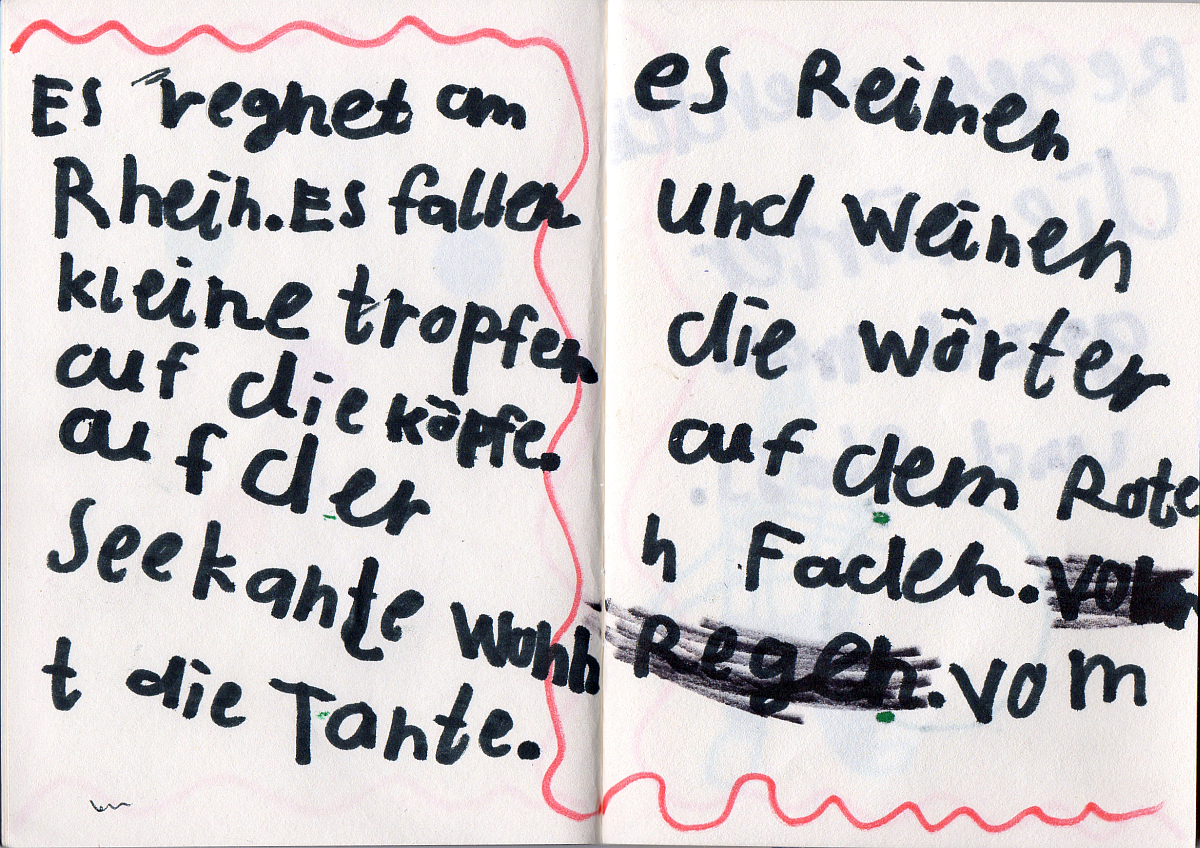 Es regnet am
Rhein. Es fallen
kleine tropfen
auf die köpfe.
auf der
Seekante wohn
t die Tante.
es Reimen
und weinen
die wörter
auf dem Rote
n Faden. vom
Regen. vom